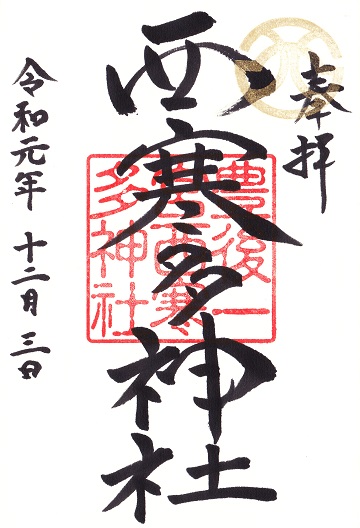 奉拝
西寒多神社
豊後一
宮西寒
多神社
令和元年 十二月 三日